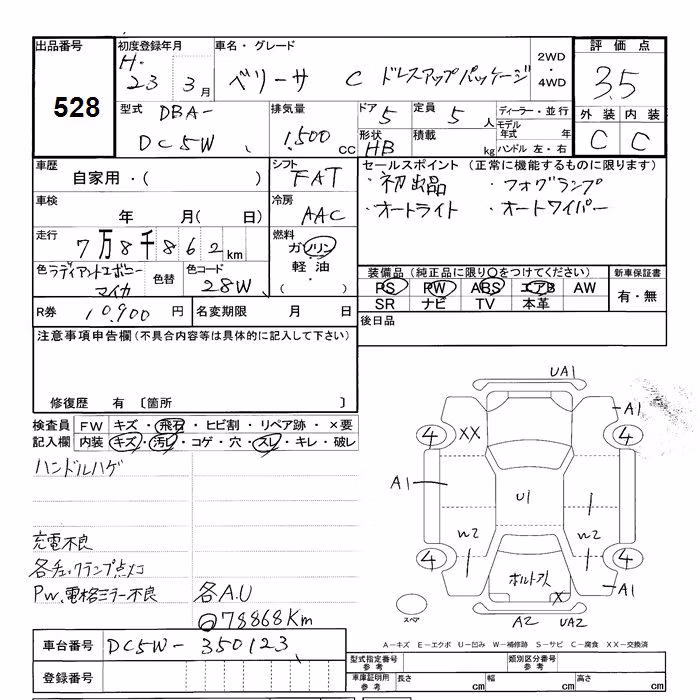 出品番号 初度登録年月 車名・グレード 2WD・4WD 評価点
528
H. 23 3月 ベリーサ C ドレスアップパッケージ 3.5
型式 DBA- DC5W 排気量 1,500 cc ドア 5 定員 5 人 ディーラー・並行
モデル年式 年
形状 HB 積載 kg ハンドル 左・右
外装 内装
C C
車歴 自家用・( ) シフト FAT セールスポイント (正常に機能するものに限ります)
・初出品 ・フォグランプ
車検 年 月( 日) 冷房 AAC ・オートライト ・オートワイパー
走行 7万8千862km 燃料 ガソリン・軽油・( )
色 ラディアントエボニーマイカ 色替 色コード 28W
装備品 (純正品に限り○をつけてください) 新車保証書
PS PW ABS エアB AW 有・無
SR ナビ TV 本革
R券 10,900 円 名変期限 月 日 後日品
注意事項申告欄 (不具合内容等は具体的に記入して下さい)
修復歴 有 〔箇所 〕
検査員記入欄 FW キズ・飛石・ヒビ割・リペア跡・×要
内装 キズ・汚レ・コゲ・穴・スレ・キレ・破レ
ハンドルハゲ
充電不良
各チェックランプ点メツ
PW、電格ミラー不良 各A.U
78868Km
UA1
A1
4 XX 4
A1
U1
W2 W2
4 4
ボルト入
X
A1
スペア
A2 UA2
車台番号 DC5W-350123
登録番号
A－キズ E－エクボ U－凹み W－補修跡 S－サビ C－腐食 XX－交換済
型式指定番号 参考 類別区分番号 参考
車庫証明用 参考 長さ cm 幅 cm 高さ cm